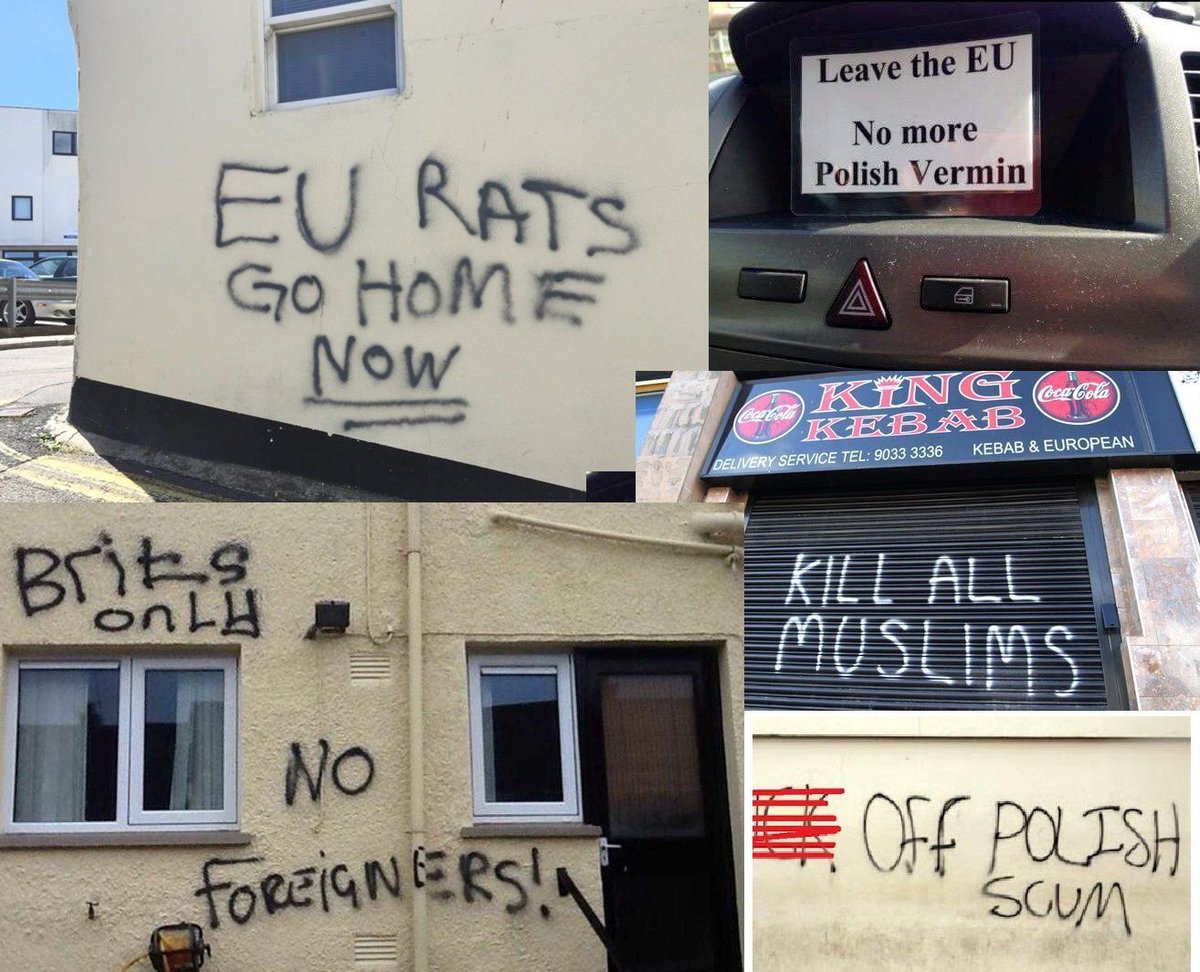 EU RATS
GO HOME
NOW
Leave the EU
No more
Polish Vermin
Coca-Cola
KING
KEBAB
Coca-Cola
DELIVERY SERVICE TEL: 9033 3336
KEBAB & EUROPEAN
KILL ALL
MUSLIMS
Brits
only
NO
FOREIGNERS!
OFF POLISH
SCUM